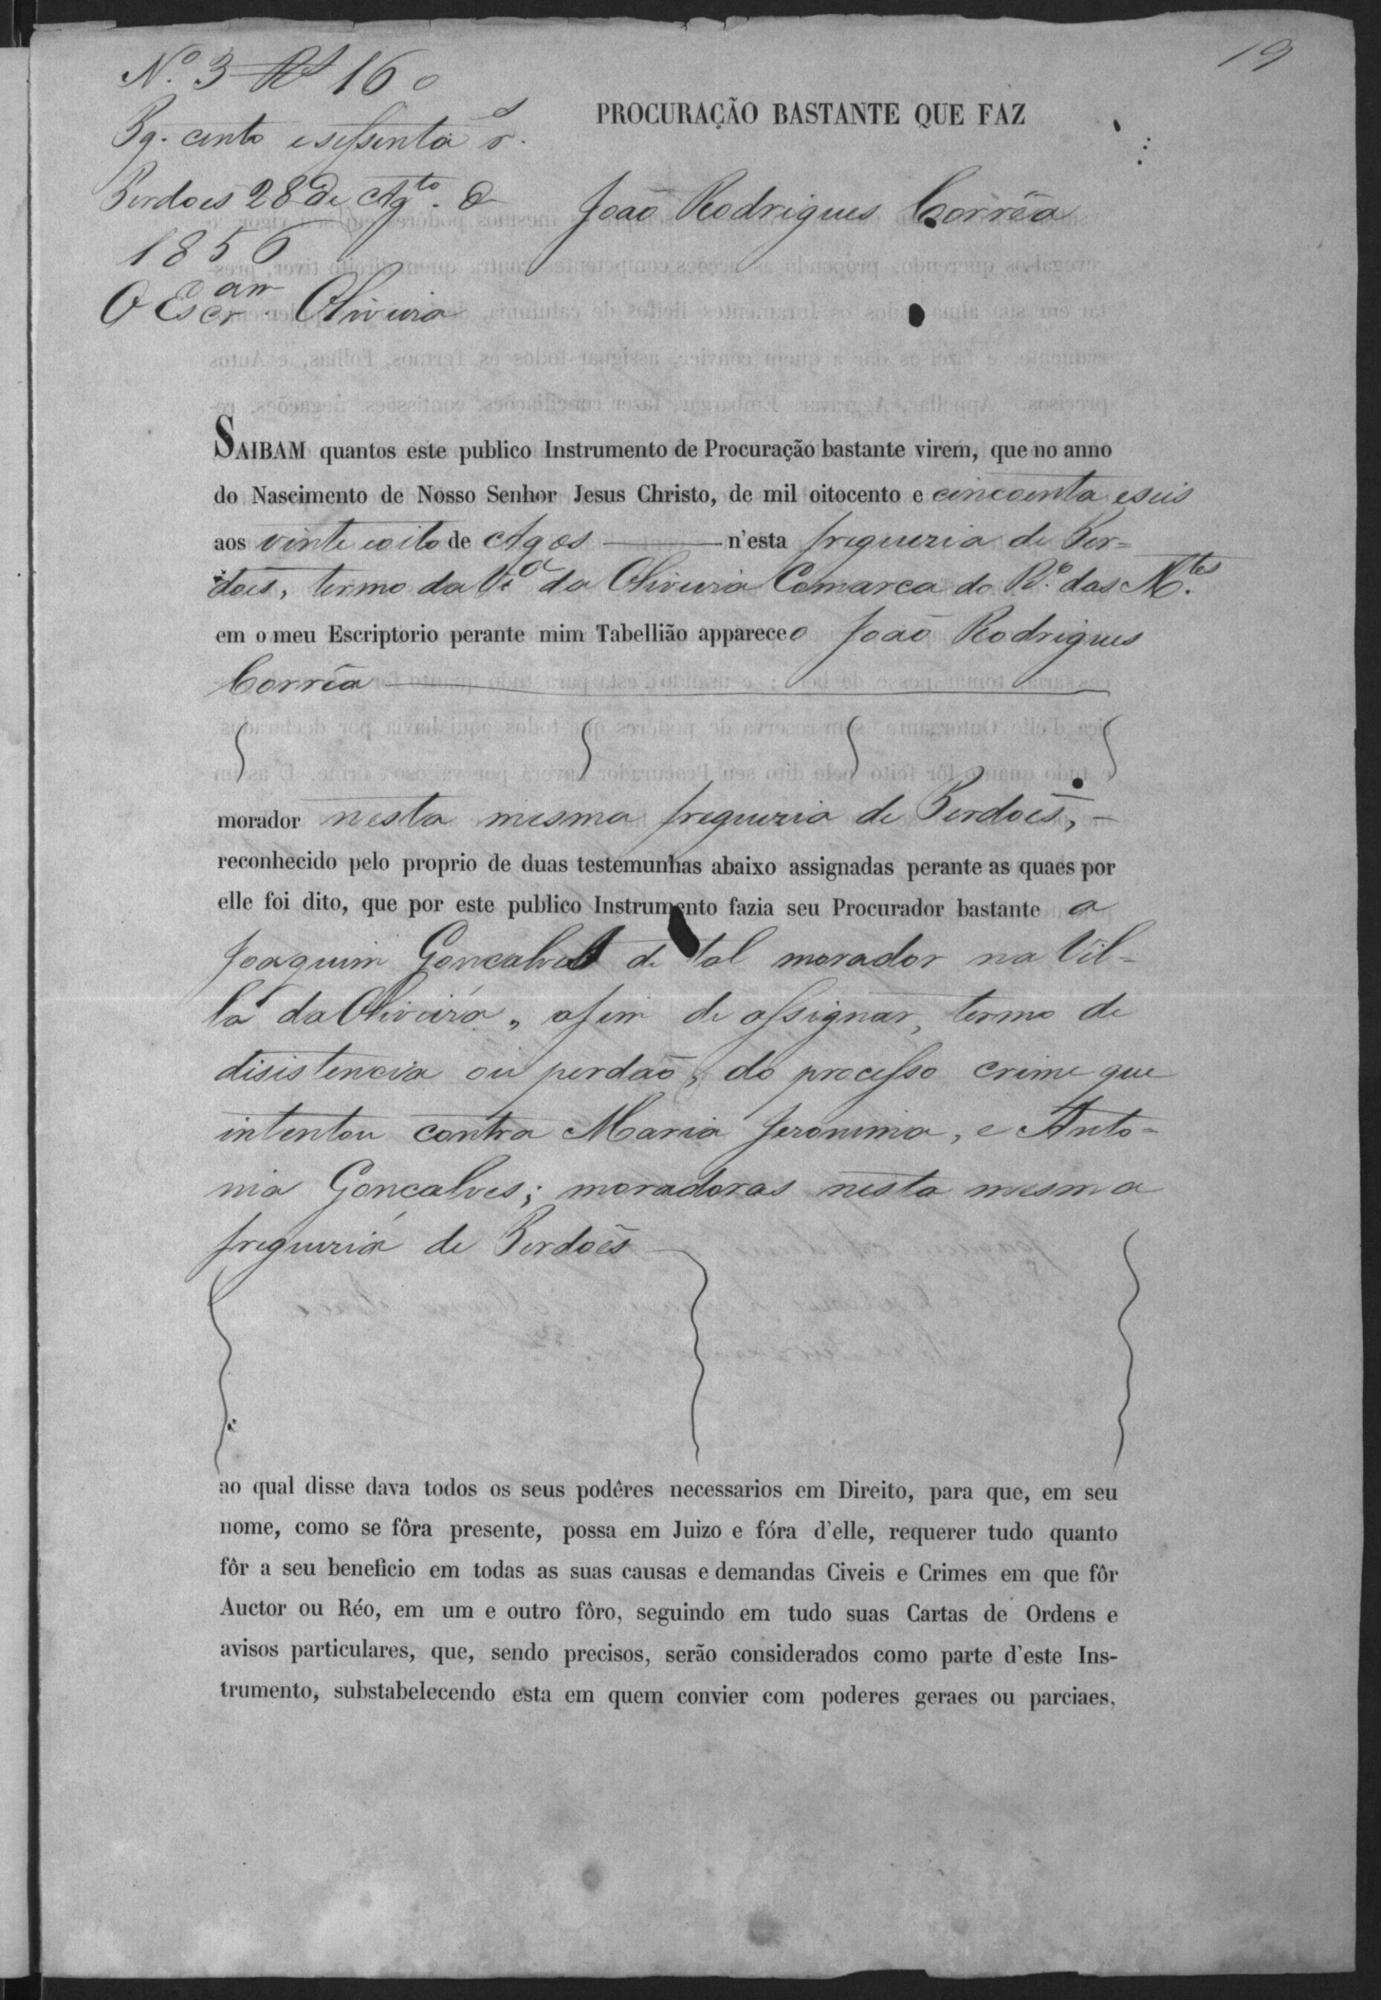 19
Nº 3 Rs 160
Pg. cento e sessenta rs.
Perdoes 28 de Agto. de
1856
O Escram Oliveira
PROCURAÇÃO BASTANTE QUE FAZ
João Rodrigues Corrêa
SAIBAM quantos este publico Instrumento de Procuração bastante virem, que no anno
do Nascimento de Nosso Senhor Jesus Christo, de mil oitocento e cincoenta e seis
aos vinte e oito de Agos n'esta freguezia de Per=
does, termo da Va. da Oliveira Comarca do Rº. das Mtes.
em o meu Escriptorio perante mim Tabellião appareceo João Rodrigues
Corrêa
morador nesta mesma freguezia de Perdoes,
reconhecido pelo proprio de duas testemunhas abaixo assignadas perante as quaes por
elle foi dito, que por este publico Instrumento fazia seu Procurador bastante a
Joaquim Gonçalves de tal morador na Vil=
la da Oliveira, afim de assignar, termo de
disistencia ou perdaõ, do processo crime que
intentou contra Maria Jeronima, e Anto=
nia Gonçalves; moradoras nesta mesma
freguezia de Perdoes
ao qual disse dava todos os seus podêres necessarios em Direito, para que, em seu
nome, como se fôra presente, possa em Juizo e fóra d'elle, requerer tudo quanto
fôr a seu beneficio em todas as suas causas e demandas Civeis e Crimes em que fôr
Auctor ou Réo, em um e outro fôro, seguindo em tudo suas Cartas de Ordens e
avisos particulares, que, sendo precisos, serão considerados como parte d'este Ins-
trumento, substabelecendo esta em quem convier com poderes geraes ou parciaes,